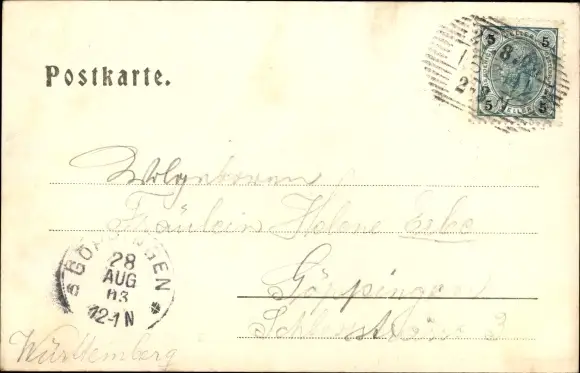 Postkarte.
5 5
5 5
Wolgeboren
Fräulein Helene
Göppingen
3
GÖPPINGEN
28
AUG
03
12-1 N
Württemberg